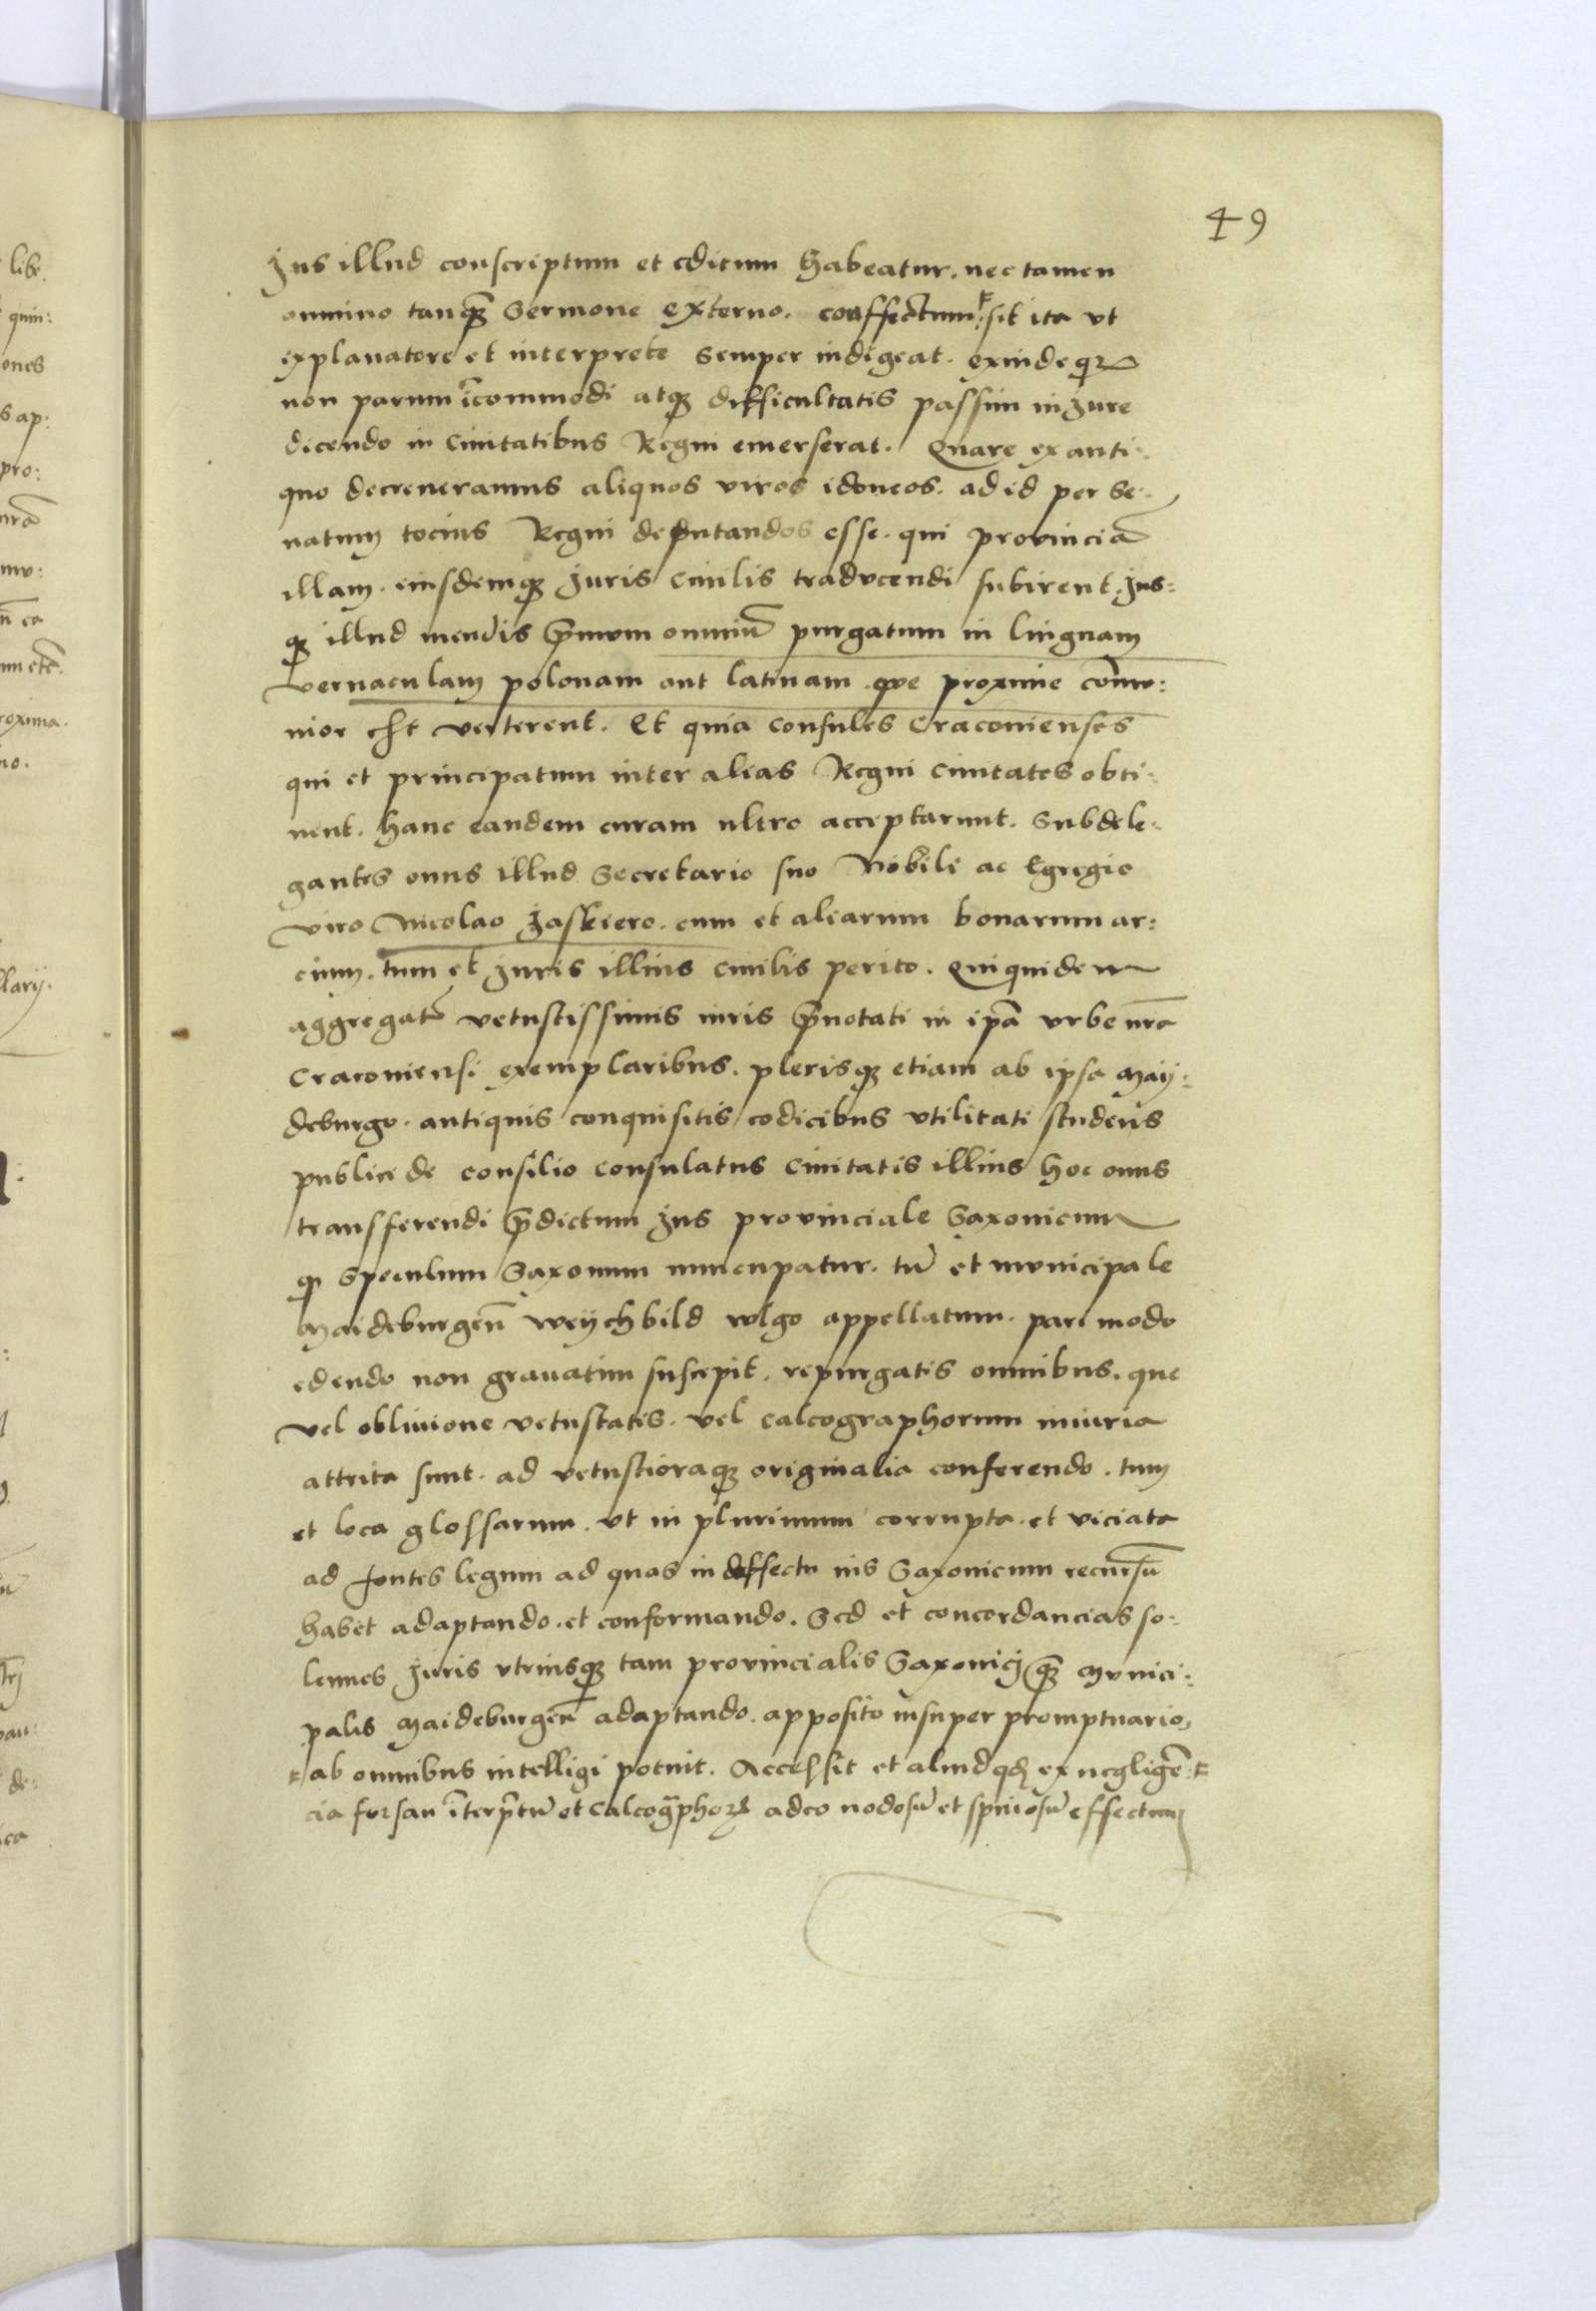 49
Jus illud conscriptum et editum habeatur. nec tamen
omnino tanqȝ Sermone externo. conffectum ⁝ sit ita vt
explanatore et interprete semper indigeat. exindeqȝ
non parum īcommodi atqȝ difficultatis passim in Jure
dicendo in Ciuitatibus Regni emerserat. Quare ex anti-
quo decreueramus aliquos viros idoneos. ad id per Se-
natum tocius Regni deputandos esse. qui prouinciā
illam. eiusdemqȝ Juris Ciuilis traducendi subirent. Jus=
qȝ illud mendis p̄mum omniū purgatum in linguam
vernaculam polonam aut latinam. que proxime com̄u:
nior est verterent. Et quia Consules Cracouienses
qui et principatum inter alias Regni Ciuitates obti-
nent. hanc eandem curam ultro acceptarunt. Subdele-
gantes onus illud Secretario suo Nobili ac Egregio
viro Nicolao Jaskiero. cum et aliarum bonarum ar:
cium. tum et Juris illius Ciuilis perito. Quiquidem
aggregatis vetustissimis iuris p̄notati in ip̄a vrbe nr̄a
Cracouiensi exemplaribus. plerisqȝ etiam ab ipsa May:
deburgo. antiquis conquisitis codicibus vtilitati studens
publice de consilio consulatus Ciuitatis illius hoc onus
transferendi p̄dictum Jus prouinciale Saxonicum
qȝ Speculum Saxonum nuncupatur. tū et municipale
Maideburgen̄ Weychbild wlgo appellatum. pari modo
edendo non grauatim suscepit. repurgatis omnibus. que
vel obliuione vetustatis. vel calcographorum iniuria
attrita sunt. ad vetustioraqȝ originalia conferendo. tum
et loca glossarum. vt in plurimum corrupta. et viciata
ad fontes legum ad quas in deffectu ius Saxonicum recursū
habet adaptando. et conformando. Sed et concordancias so-
lennes Juris vtriusqȝ tam prouincialis Saxonicj qȝ munici:
palis Maideburgen̄ adaptando. apposito insuper promptuario,
ab omnibus intelligi potuit. Accessit et aliud qđ ex negligē-
cia forsan īterp̄tū et Calcogr̄phoꝝ adeo nodosū et spinosū effectum